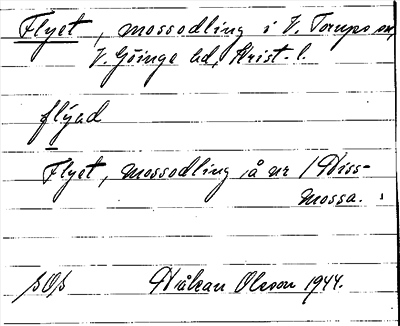 Flyet, mossodling i V. Torups sn,
V. Göinge hd, Krist. l.
flýad
Flyet, mossodling å nr 1 Diss-
mossa.
Håkan Olsson 1944.